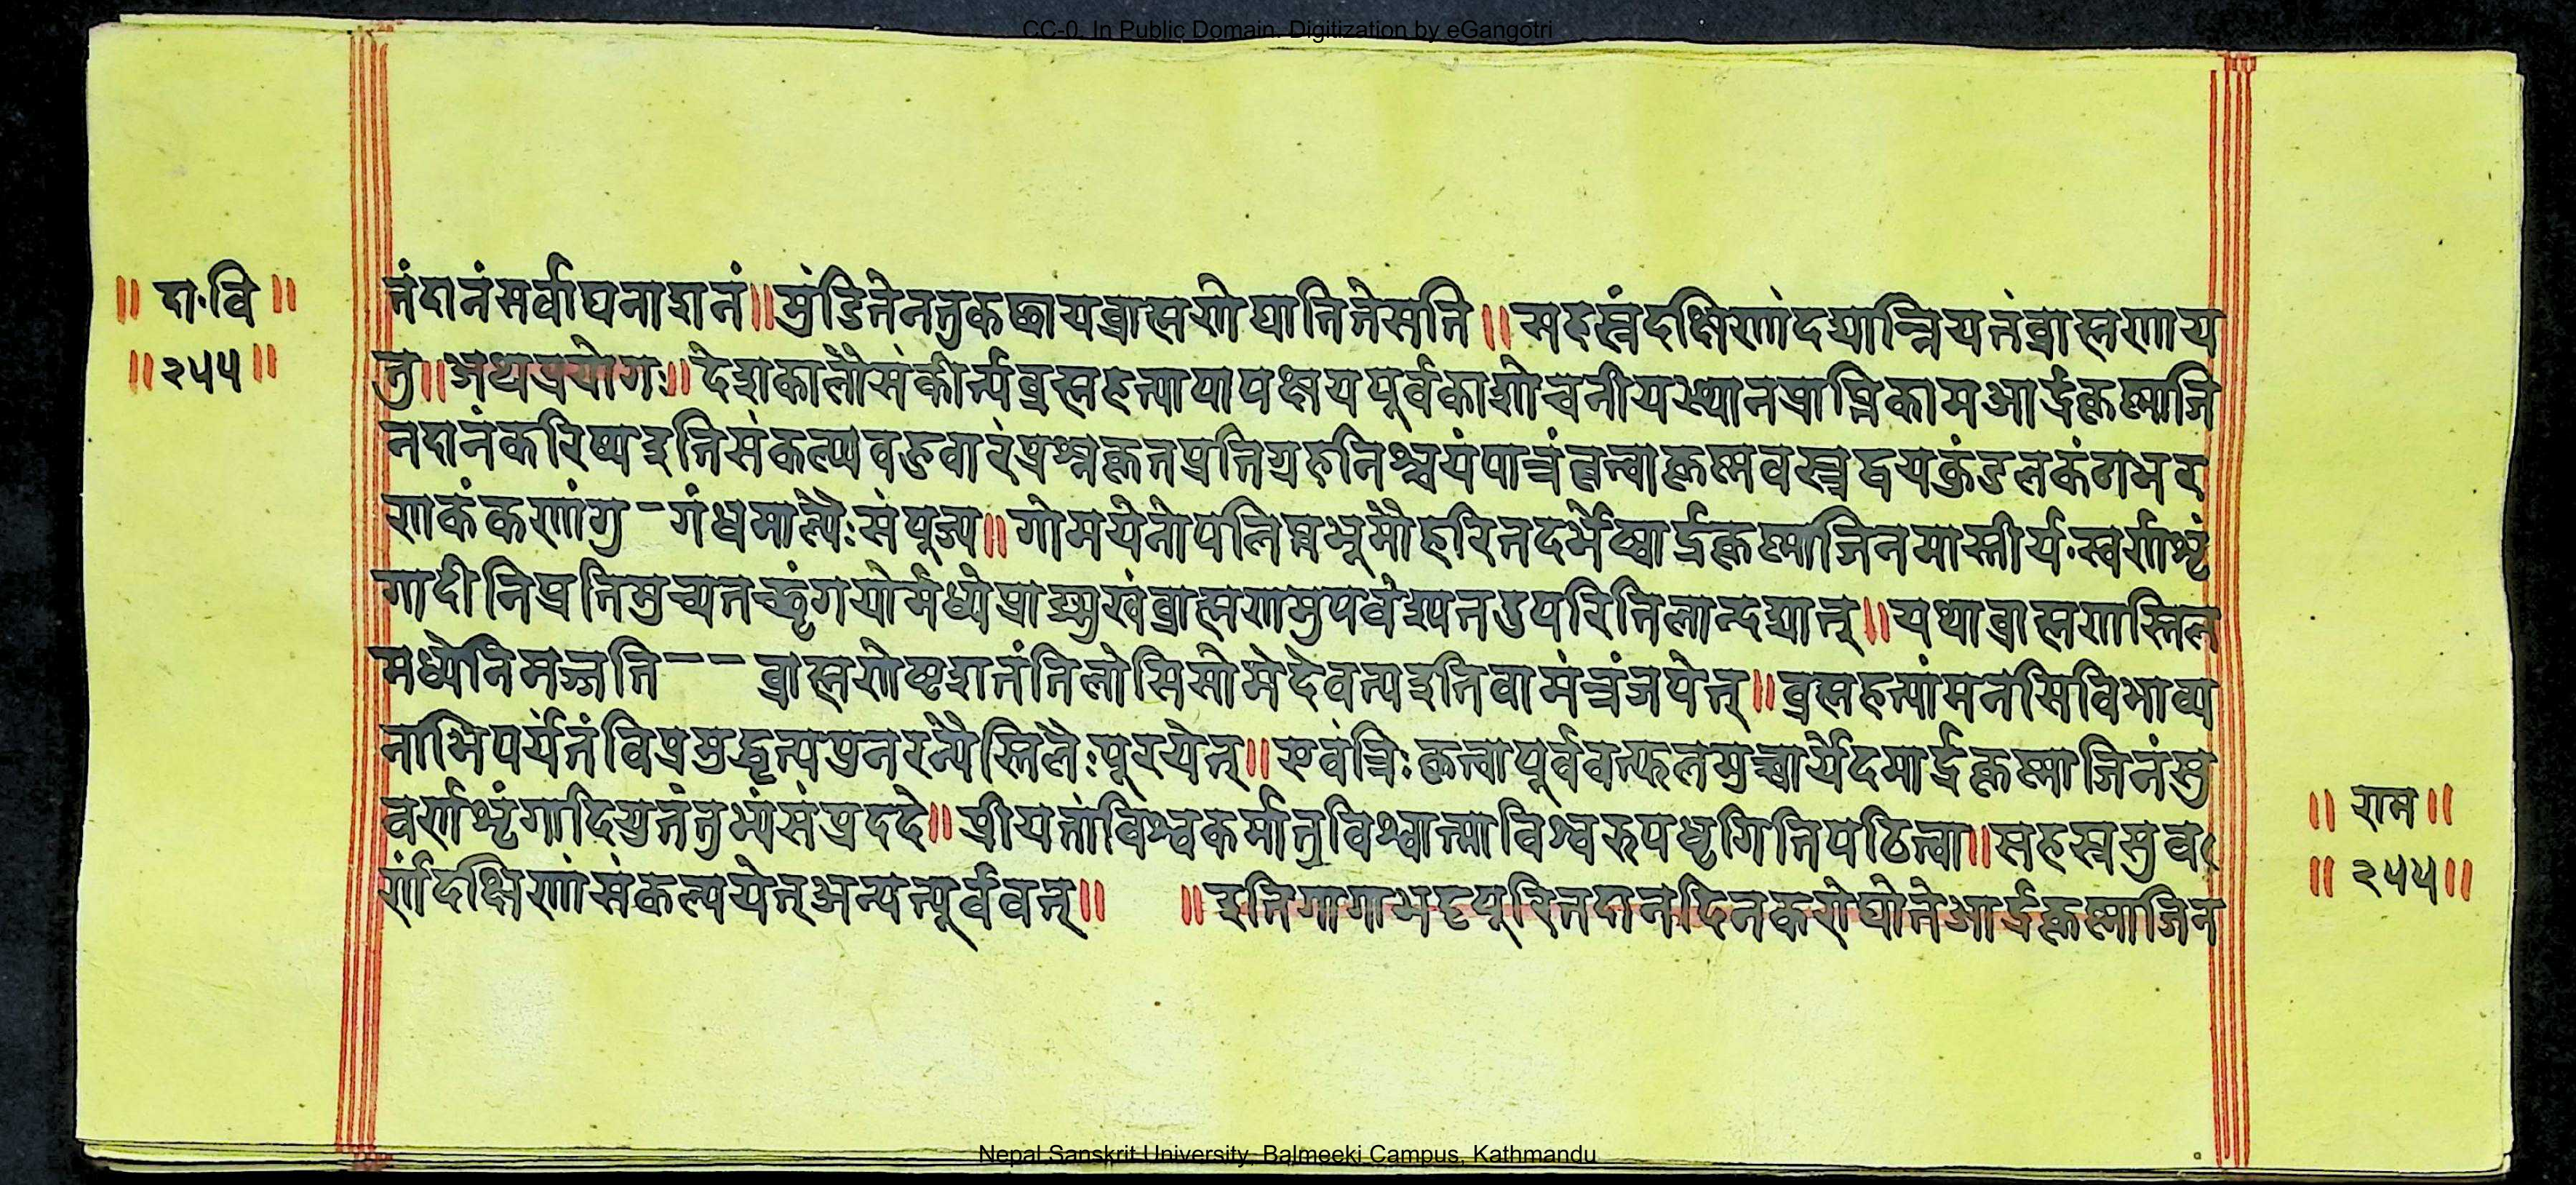 CC-0. In Public Domain. Digitization by eGangotri
॥ दा॰वि ॥
॥ २५५ ॥
तंदानंसर्वाघनाशनं॥मुंडितेनतुकछायब्राह्मणोयातितेसति॥सहस्रंदक्षिणांदद्यान्नियतंब्राह्मणाय
तु॥अथप्रयोगः॥देशकालौसंकीर्त्यब्रह्महत्यापापक्षयपूर्वकाशोचनीयस्थानप्राप्तिकामआर्द्रकृष्णाजि
नदानंकरिष्यइतिसंकल्प्यवक्तवारंप्रश्नकृतप्रतिग्रहनिश्चयंपात्रंवृत्वाकृष्णवस्त्रद्वयकुंडलकंठाभर
णकंकणांगु-गंधमाल्यैःसंपूज्य॥गोमयेनोपलिप्तभूमौहरितदर्भेष्वार्द्रकृष्णाजिनमास्तीर्य॰स्वर्णशृं
गादीनिप्रतिमुच्यतच्छृंगयोर्मध्येप्राङ्मुखंब्राह्मणमुपवेश्यतउपरितिलान्दद्यात्॥यथाब्राह्मणस्तिल
मध्येनिमज्जति-- ब्राह्मणोष्टशतंतिलोसिसोमेदेवत्यइतिवामंत्रंजपेत्॥ब्रह्महत्यांमनसिविभाव्य
नाभिपर्यंतंविप्रमुद्धृत्यपुनरन्यैस्तिलैःपूरयेत्॥एवंत्रिःकृत्वापूर्ववत्फलमुच्चार्येदमार्द्रकृष्णाजिनंसु
वर्णशृंगादियुतंतुभ्यंसंप्रददे॥प्रीयतांविश्वकर्मात्रविश्वात्माविश्वरुपधृगितिपठित्वा॥सहस्रसुव
र्णंदक्षिणांसंकल्पयेत्अन्यत्पूर्ववत्॥ ॥इतिगागाभट्टपूरितदानदिनकरोद्योतेआर्द्रकृष्णाजिन
॥ राम ॥
॥ २५५॥
Nepal Sanskrit University, Balmeeki Campus, Kathmandu